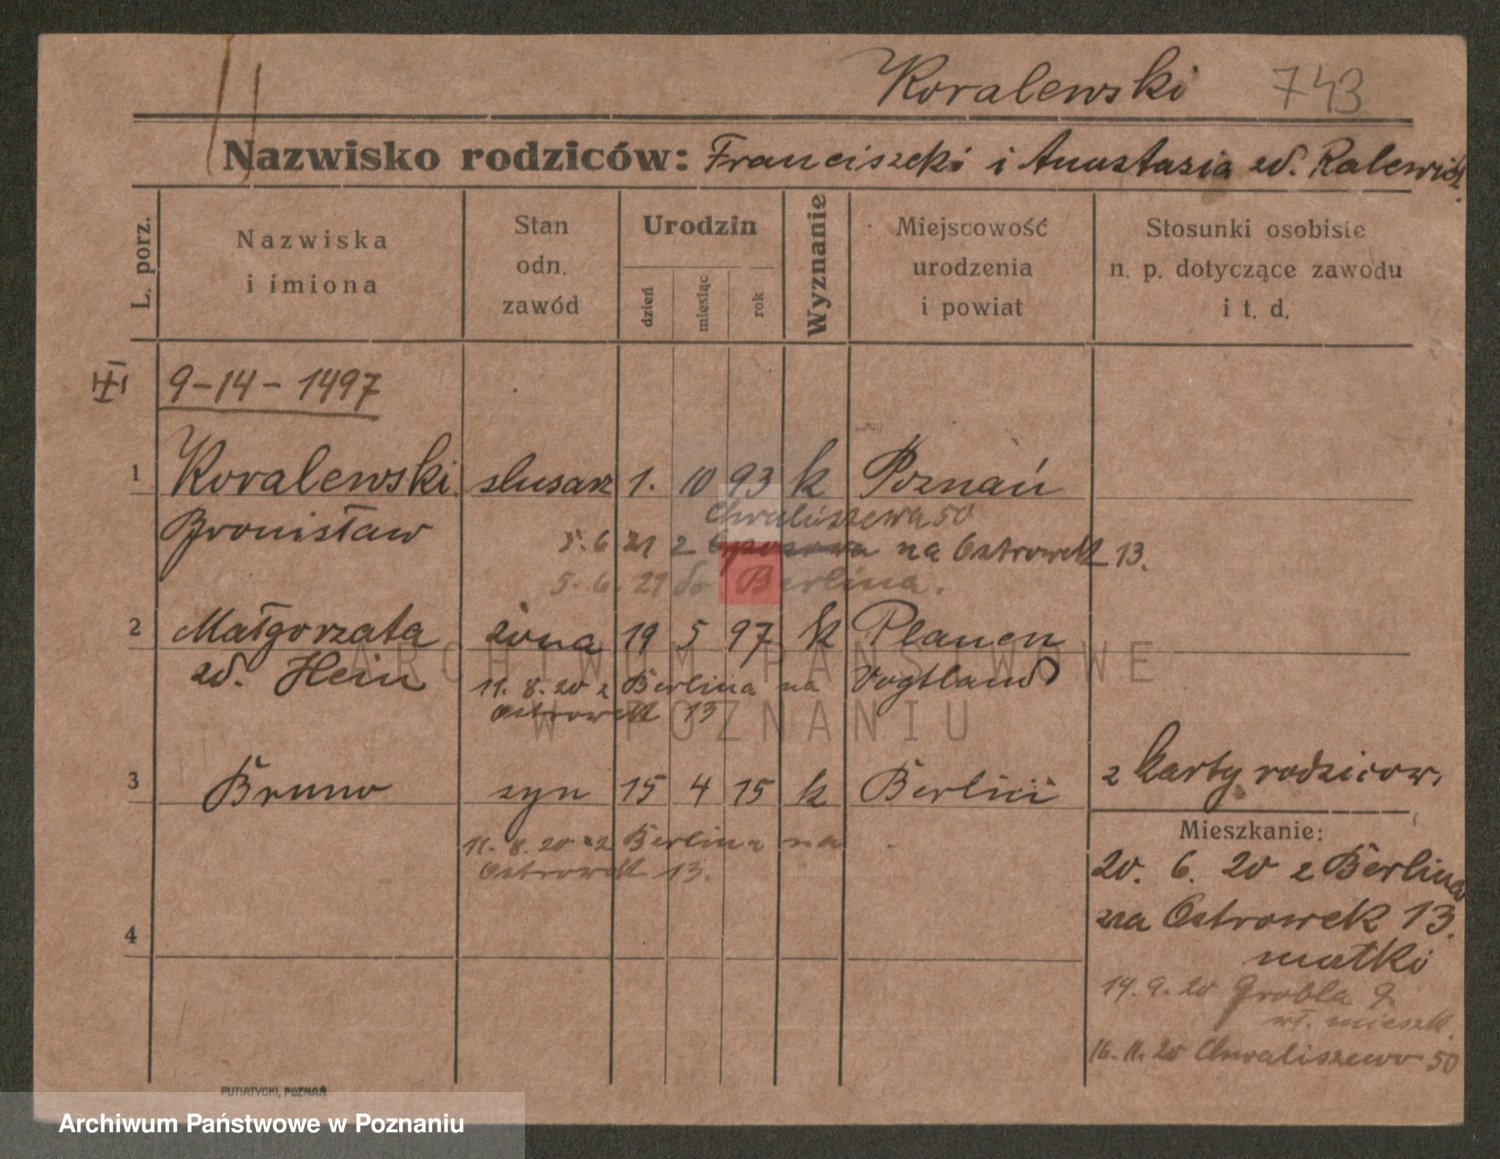 Koralewski 743
Nazwisko rodziców: Franciszki i Anastasia zd. Ralewicz
L. porz.
Nazwiska
i imiona
Stan
odn.
zawód
Urodzin
dzień
miesiąc
rok
Wyznanie
Miejscowość
urodzenia
i powiat
Stosunki osobiste
n. p. dotyczące zawodu
i t. d.
9-14-1497
1 Koralewski slusarz 1. 10 93 k Poznań
Chwaliszewa 50
Bronisław
5.6 21 z na Ostrowek 13.
5. 6. 21 do Berlina.
2 Małgorzata żona 19 5 97 k Plauen
zd. Hein 11. 8. 20 z Berlina na Vogtland
Ostrowek 13
3 Bruno syn 15 4 15 k Berlin z karty rodzicow.
11. 8. 20 z Berlina na
Ostrowek 13.
4
Mieszkanie:
20. 6. 20 z Berlina
na Ostrowek 13.
matki
14. 9. 20 Grobla 9.
wł. mieszk.
16. 11. 20 Chwaliszewo 50
PUTIATYCKI, POZNAŃ
ARCHIWUM PAŃSTWOWE
W POZNANIU
Archiwum Państwowe w Poznaniu